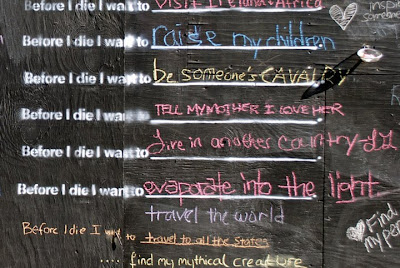 Before I die I want to VISIT Ireland + Africa
Before I die I want to raise my children
Before I die I want to be someone's CAVALRY
Before I die I want to TELL MY MOTHER I LOVE HER
Before I die I want to Live in another country
Before I die I want to evaporate into the light
travel the world
Before I die I want to travel to all the States
.... find my mythical creature
inspire
someone
Find
my